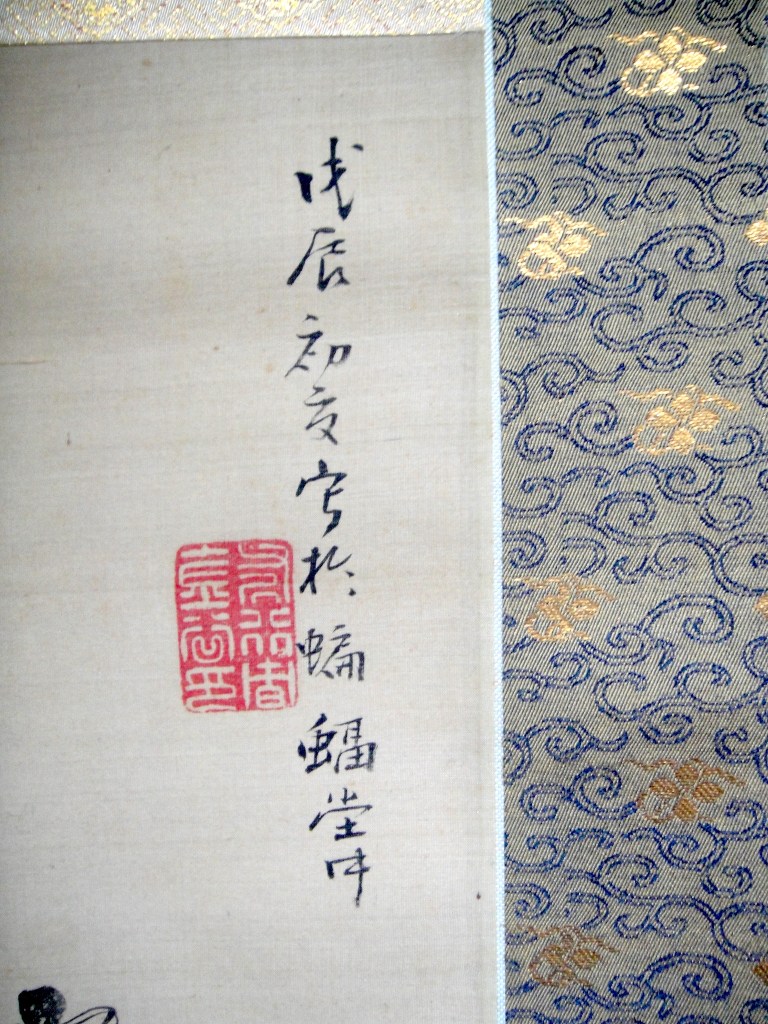 戊辰初夏写於蝙蝠堂中